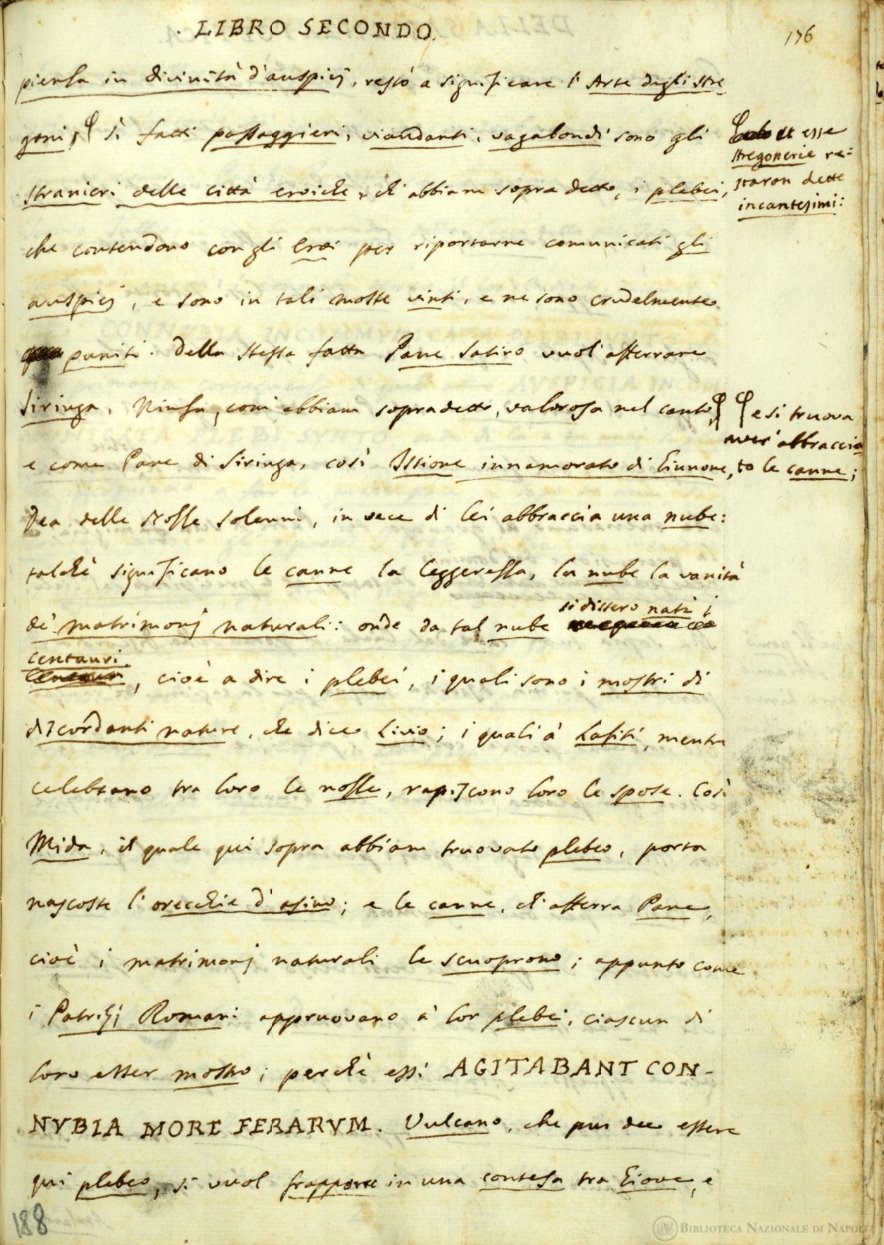 LIBRO SECONDO.
176
pienza in divinità d'auspicj, restò a significare l'Arte degli Stre
goni; ¶ Sì fatti passaggieri, viandanti, vagabondi sono gli
¶ et esse
stregonerie re=
staron dette
incantesimi:
stranieri delle città eroiche, ch'abbiam sopra detto, i plebei,
che contendono con gli Eroi per riportarne comunicati gli
auspicj, e sono in tali mosse vinti, e ne sono crudelmente
puniti. Della stessa fatta Pane Satiro vuol'afferrare
Siringa, Ninfa, com'abbiam sopradetto, valorosa nel canto, ¶
¶ e si truova
aver'abbraccia
to le canne;
e come Pane di Siringa, così Issione innamorato di Giunone,
Dea delle Nozze solenni, in vece di lei abbraccia una nube:
talchè significano le canne la leggerezza, la nube la vanità
de' matrimonj naturali: onde da tal nube si dissero nati i
centauri,
cioè a dire i plebei, i quali sono i mostri di
discordanti nature, che dice Livio; i quali a' Lafiti, mentre
celebrano tra loro le nozze, rapiscono loro le spose. Così
Mida, il quale qui sopra abbiam truovato plebeo, porta
nascoste l'orecchie d'asino; e le canne, ch'afferra Pane,
cioè i matrimonj naturali le scuoprono; appunto come
i Patrizj Romani appruovano a' lor plebei, ciascun di
loro esser mostro; perchè essi AGITABANT CON-
NVBIA MORE FERARVM. Vulcano, che pur dee essere
qui plebeo, si vuol frapporre in una contesa tra Giove, e
188
BIBLIOTECA NAZIONALE DI NAPOLI